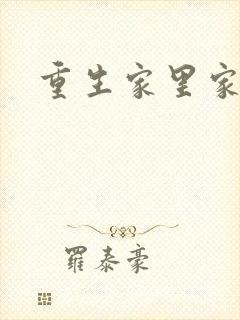 重生家里家
羅泰豪